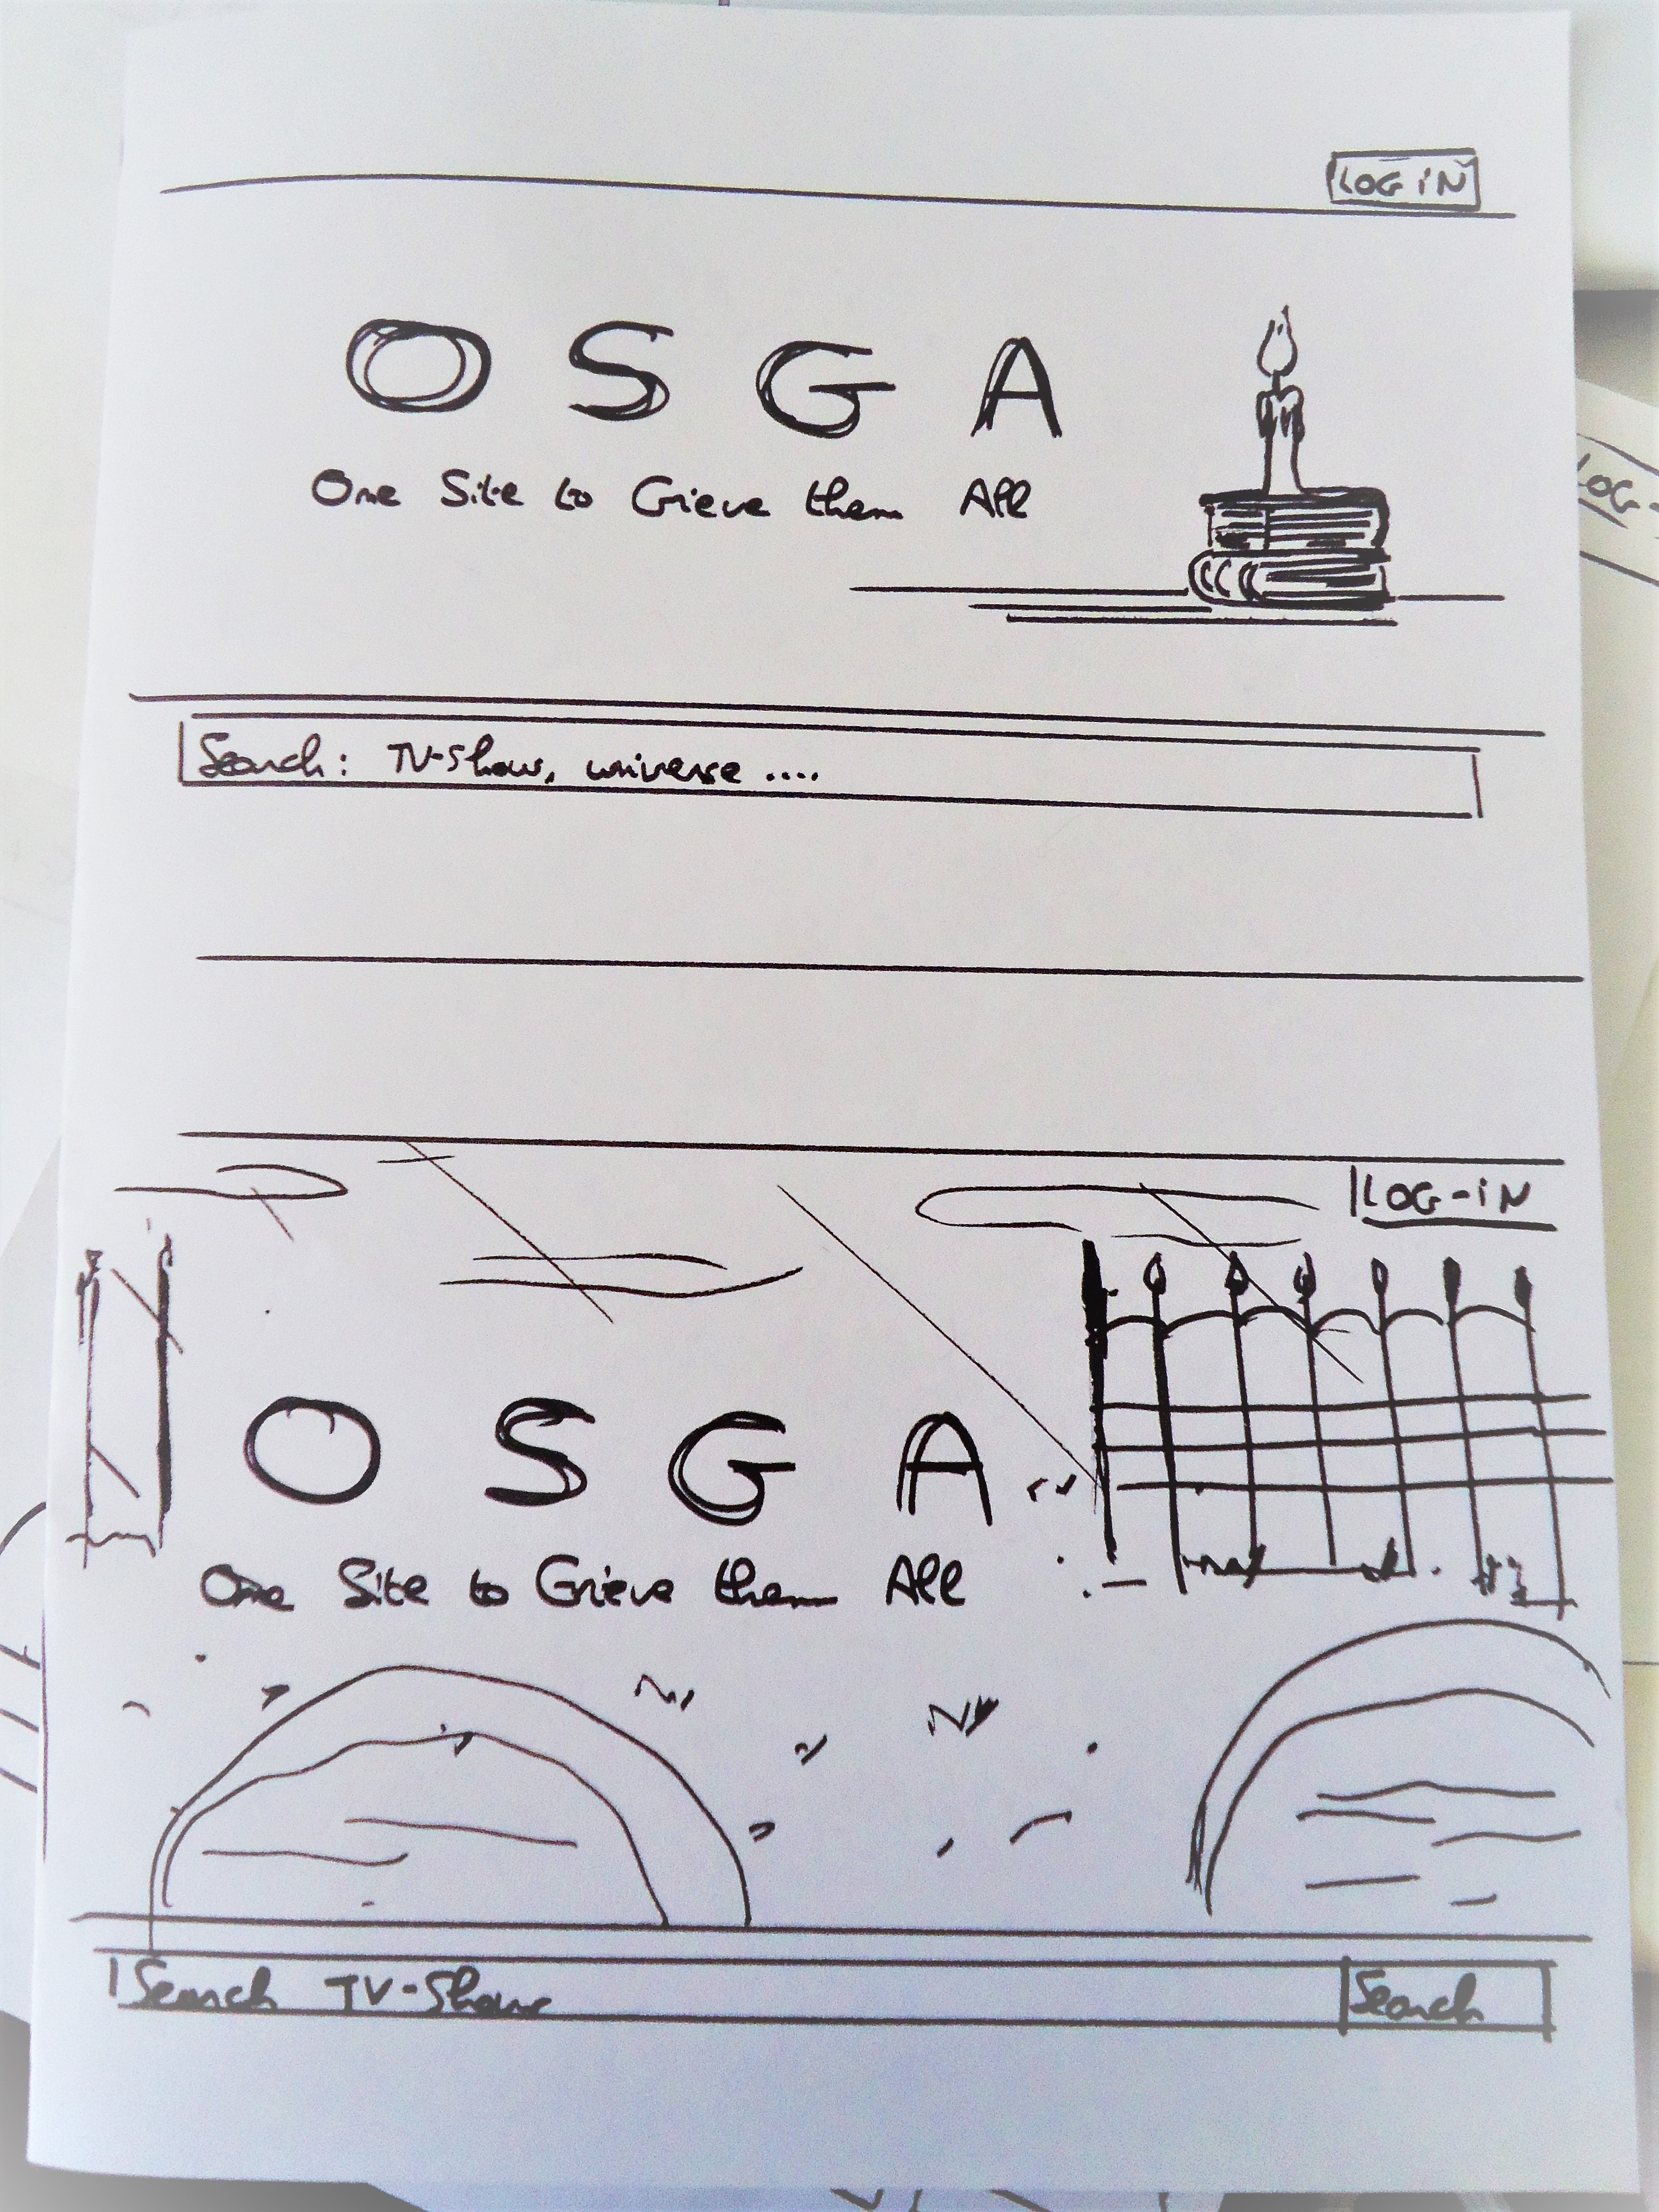 LOG IN
OSGA
One Site to Grieve them All
Search: TV-Show, universe ....
LOG-IN
OSGA
One Site to Grieve them All
Search TV-Show
Search
LOG-